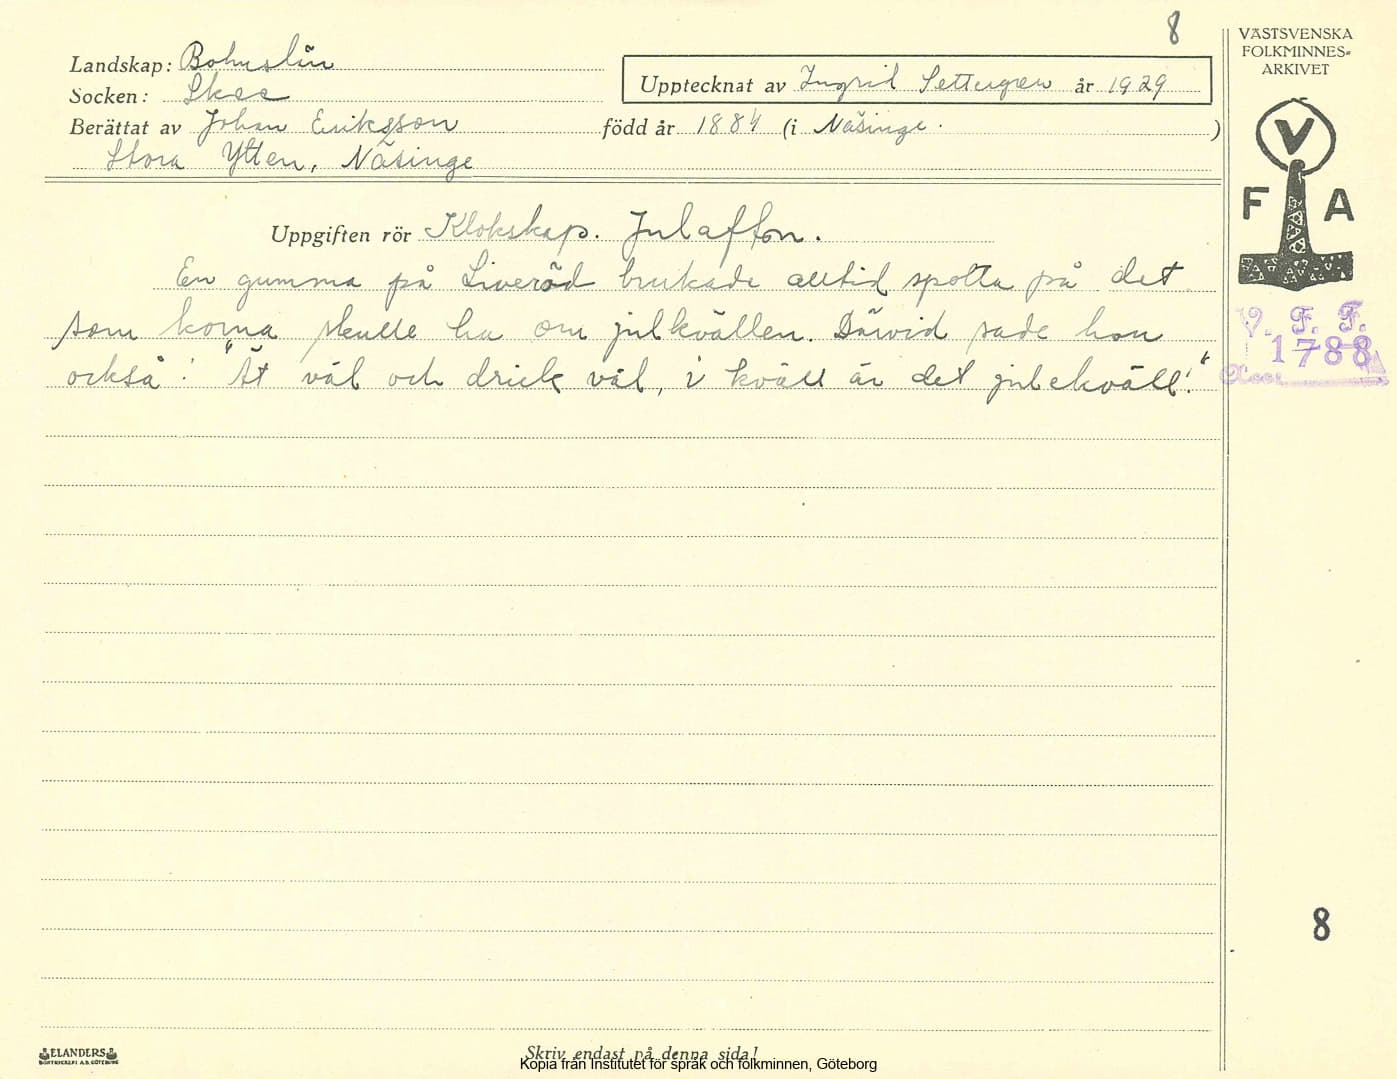 8
VÄSTSVENSKA
FOLKMINNES-
ARKIVET
Landskap: Bohuslän
Upptecknat av Ingrid Settergren år 1929
Socken: Skee
Berättat av Johan Eriksson född år 1884 (i Näsinge.)
Stora Ytten, Näsinge
V
F A
Uppgiften rör Klokskap. Julafton.
En gumma på Liveröd brukade alltid spotta på det
som korna skulle ha om julkvällen. Därvid sade hon
också: "Ät väl och drick väl, i kväll är det julekväll!"
V. F. F.
1788
8
ELANDERS
BOKTRYCKERI A.B. GÖTEBORG
Skriv endast på denna sida!
Kopia från Institutet för språk och folkminnen, Göteborg